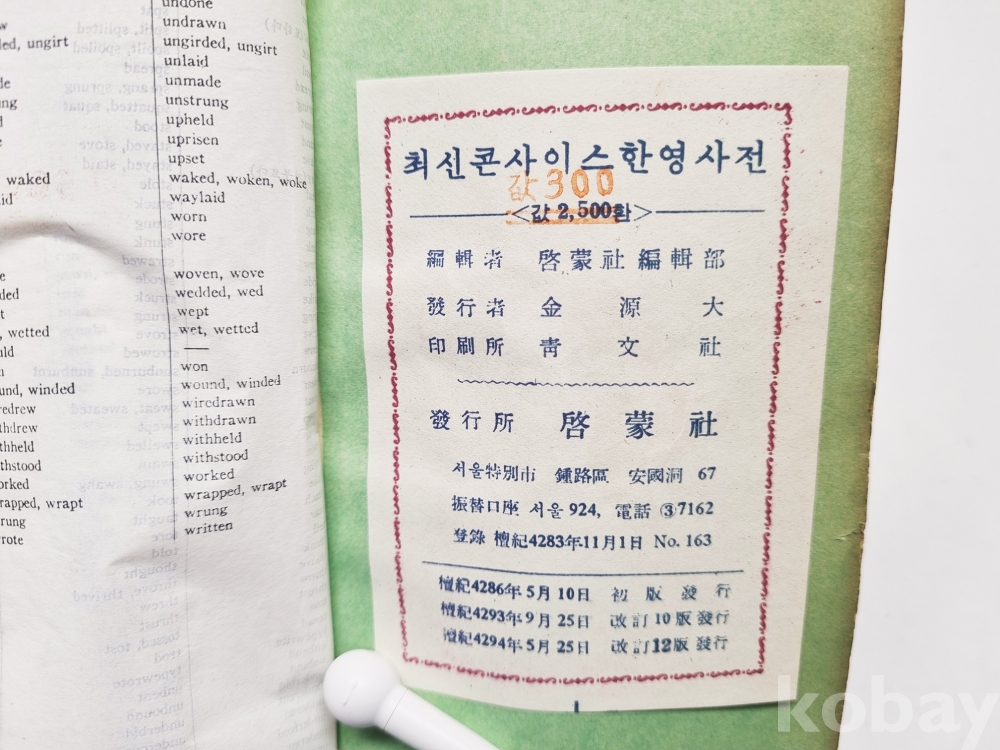 led, ungirt
waked
id
ded
t
, wetted
und, winded
redrew
thdrew
thheld
thstood
orked
rapped, wrapt
rung
rote
undone
undrawn
ungirded, ungirt
unlaid
unmade
unstrung
upheld
uprisen
upset
waked, woken, woke
waylaid
worn
wore
woven, wove
wedded, wed
wept
wet, wetted
—
won
wound, winded
wiredrawn
withdrawn
withheld
withstood
worked
wrapped, wrapt
wrung
written
최신콘사이스한영사전
값 300
<값 2,500환>
編輯者 啓蒙社編輯部
發行者 金源大
印刷所 靑文社
發行所 啓蒙社
서울特別市 鍾路區 安國洞 67
振替口座 서울 924, 電話 ③7162
登錄 檀紀4283年11月1日 No. 163
檀紀4286年 5月 10日 初版發行
檀紀4293年 9月 25日 改訂10版發行
檀紀4294年 5月 25日 改訂12版發行
kobay